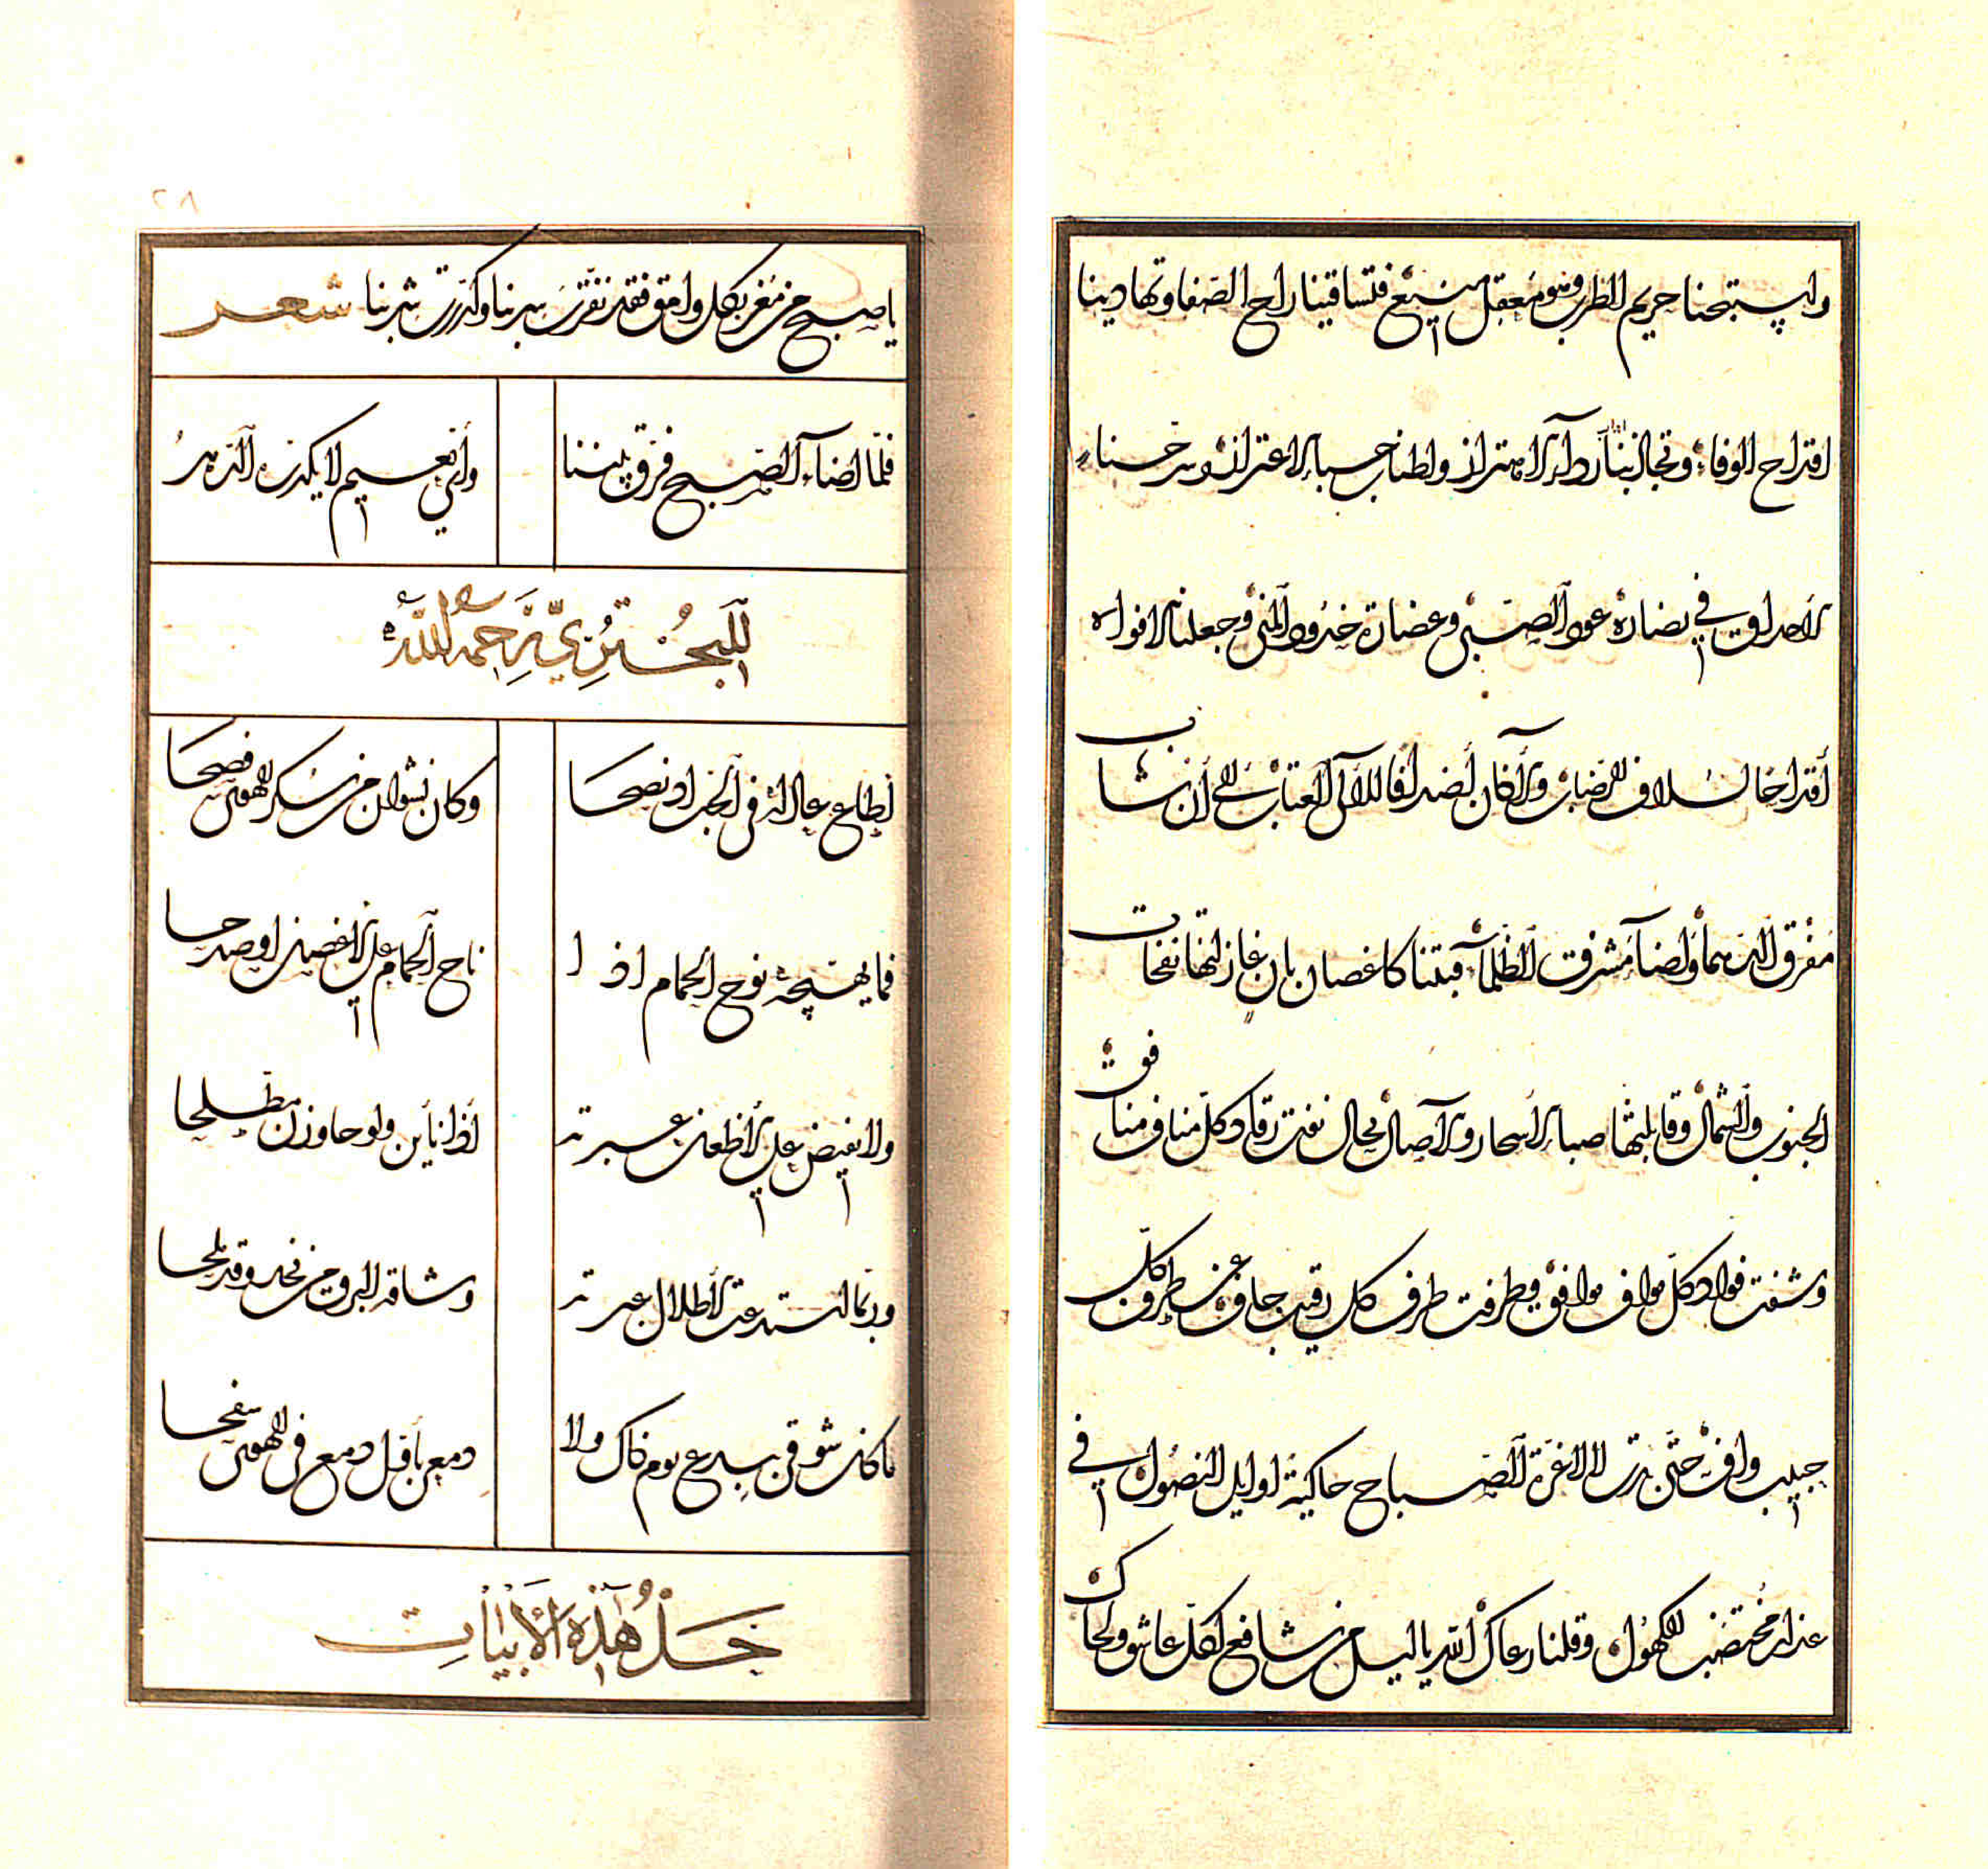 واستبحنا حريم الطرب وهو معقل منيع فتساقينا راح الصفا وتهادينا
اقداح الوفاء وتجاذبنا رداء الاهتزاز ولطناب حباء الاعتزاز وسرحنا
الاحداق في نضارة عود الصبى وغضارة خدود المنى وجعلنا الافواه
أقداحا لسلاف الرضاب والآذان أصدافا للآلئ العتاب الى أن شاب
مفرق الدهماء وأضاء مشرق الظلماء فبتنا كاغصان بان غازلتها نفحات
الجنوب والشمال وقابلتها صبا الأسحار والآصال بحال نفت رقاد كل منافر منافق
وشفت فواد كل مواف موافق وطرفت طرف كل رقيب جاف عن طروق كل
حبيب واف حتى بدت لالاء غرة الصباح حاكية اوايل النصول في
عذار مختضب الكهول وقلنا رعاك الله يا ليل من شافع لكل عاشق ولحاك
٢٨
يا صبح من مغر بكل وامق فقد نفرت سربنا وكدرت شربنا شعر
فلما اضاء الصبح فرق بيننا وأي نعيم لا يكدره الدهر
للبحتري رحمه الله
أطاع عاذله في الحب اذ نصحا وكان نشوان من سكر الهوى فصحا
فما يهيجه نوح الحمام اذا ناح الحمام على الاغصان او صدحا
ولا يفيض على الاظعان عبرته اذا نأين ولو جاوزن مطلحا
وربما استدعت الأطلال عبرته وشاقه البرق من نجد وقد لمحا
ما كان شوقي ببدع يوم ذاك ولا دمعي بأول دمع في الهوى سفحا
حل هذه الأبيات